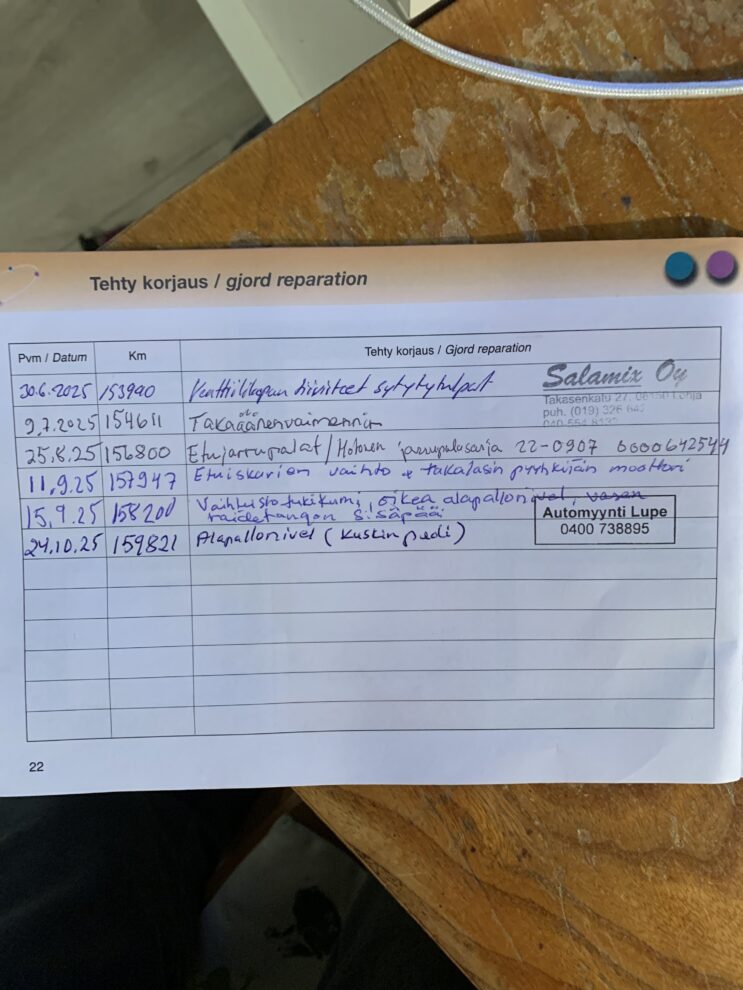 Tehty korjaus / gjord reparation
Pvm / Datum Km Tehty korjaus / Gjord reparation
30.6.2025 153990 Venttiilikopan tiivisteet sytytystulpat
Salamix Oy
Takasenkatu 27, 08150 Lohja
puh. (019) 326 642
9.7.2025 154611 Takaäänenvaimennin
25.8.25 156800 Etujarrupalat/Motonen jarrupalasarja 22-0907 0000642544
11.9.25 157947 Etuiskarien vaihto + takalasin pyyhkijän moottori
15.9.25 158200 Vaihteisto tukikumi, oikea alapallonivel, vasen
raidetangon sisäpää
Automyynti Lupe
0400 738895
24.10.25 159821 Alapallonivel (kuskin puoli)
22